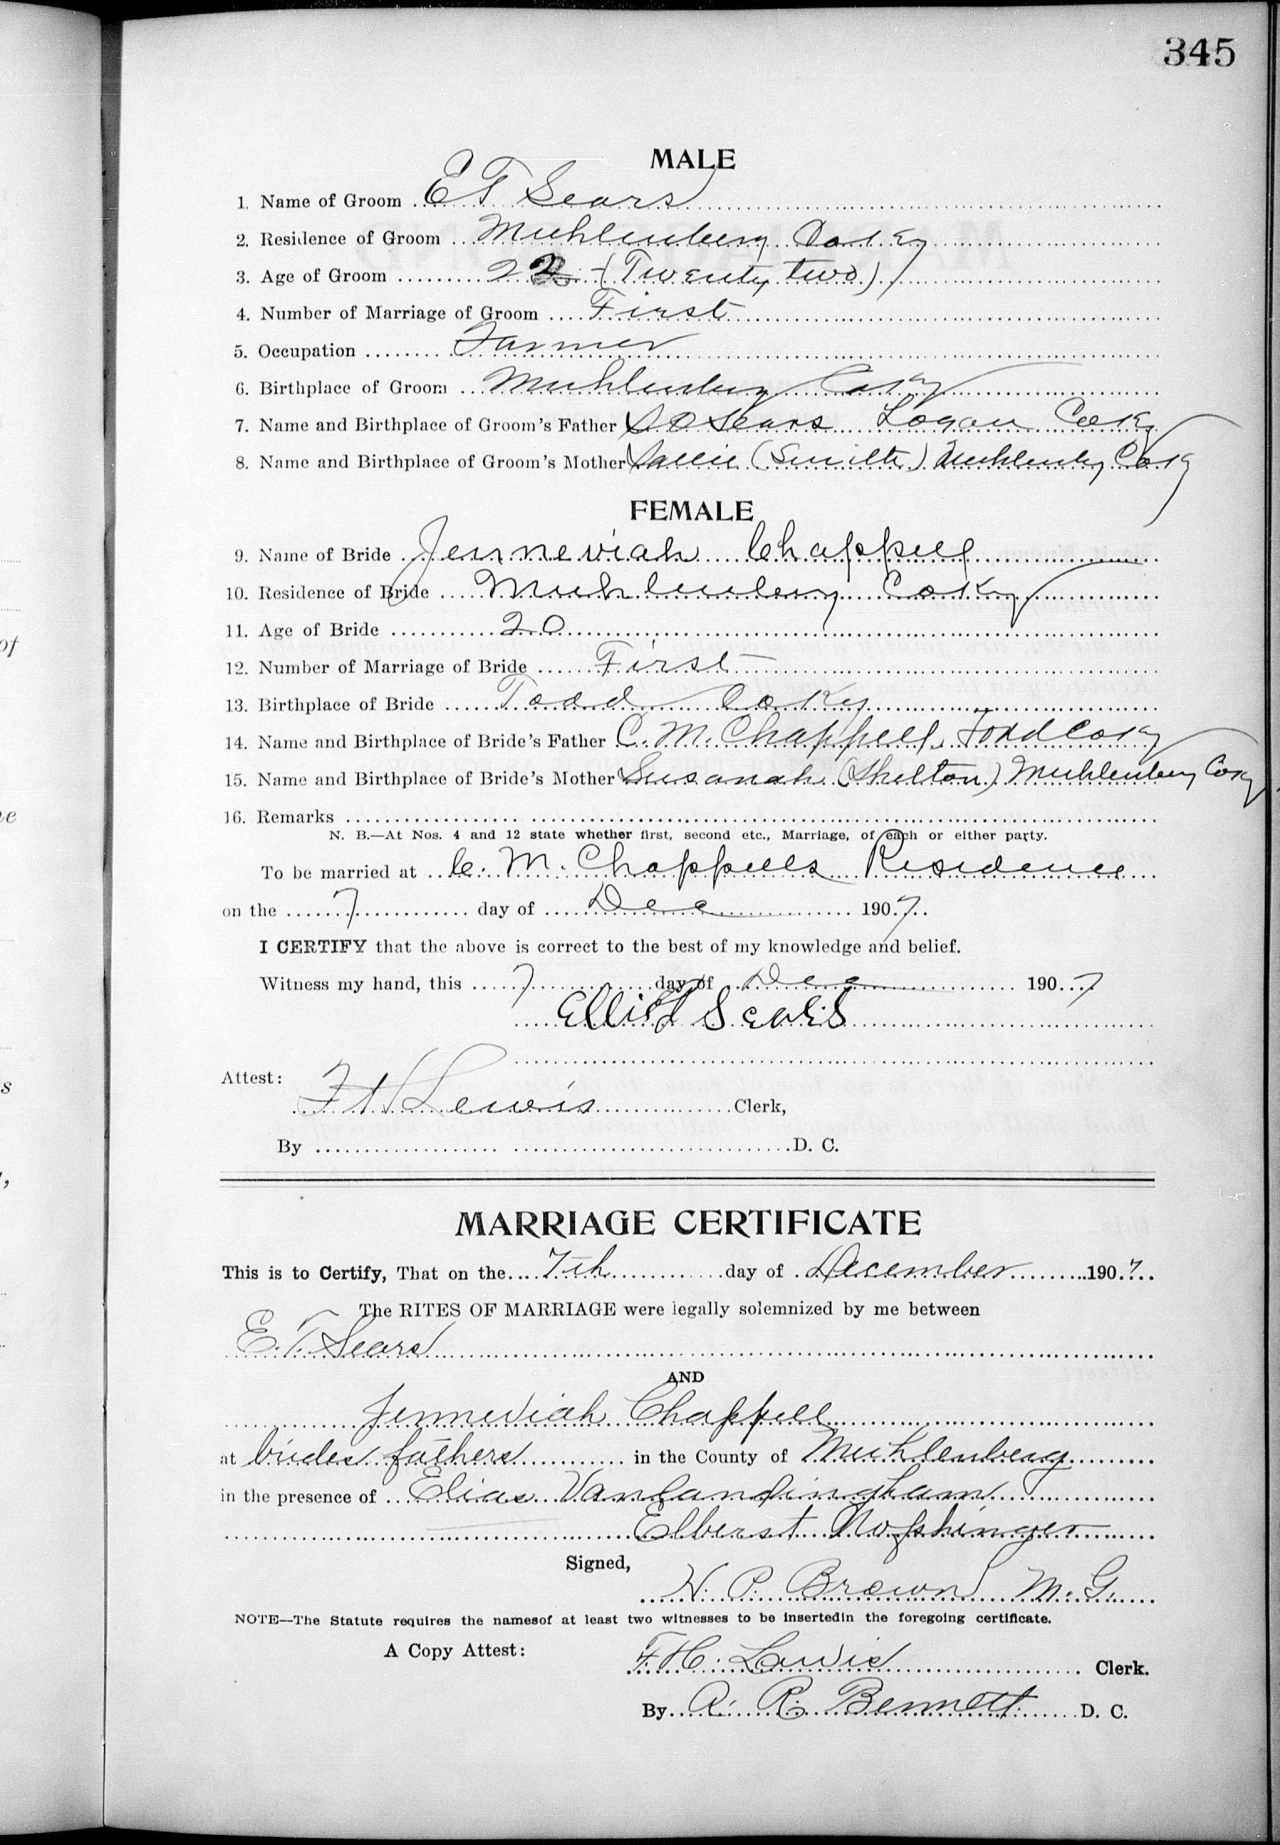 345
MALE
1. Name of Groom E T Sears
2. Residence of Groom Muhlenberg Co Ky
3. Age of Groom 22 - (Twenty two)
4. Number of Marriage of Groom First
5. Occupation Farmer
6. Birthplace of Groom Muhlenberg Co Ky
7. Name and Birthplace of Groom's Father Sears Logan Co Ky
8. Name and Birthplace of Groom's Mother Sallie (Smith) Muhlenberg Co Ky
FEMALE
9. Name of Bride Jenneviah Chappell
10. Residence of Bride Muhlenberg Co Ky
11. Age of Bride 20
12. Number of Marriage of Bride First
13. Birthplace of Bride Todd Co Ky
14. Name and Birthplace of Bride's Father C. M. Chappell, Todd Co Ky
15. Name and Birthplace of Bride's Mother Susanah (Shelton) Muhlenberg Co Ky
16. Remarks
N. B.—At Nos. 4 and 12 state whether first, second etc., Marriage, of each or either party.
To be married at C. M. Chappells Residence
on the 7 day of Dec 1907
I CERTIFY that the above is correct to the best of my knowledge and belief.
Witness my hand, this 7 day of Dec 1907
Elliot Sears
Attest:
Lewis Clerk,
By D. C.
MARRIAGE CERTIFICATE
This is to Certify, That on the 7th day of December 1907
The RITES OF MARRIAGE were legally solemnized by me between
E. T. Sears
AND
Jenneviah Chappell
at brides fathers in the County of Muhlenberg
in the presence of Elias Vanlandingham
Elberst Nofsinger
Signed,
H. P. Brown M. G.
NOTE—The Statute requires the namesof at least two witnesses to be insertedin the foregoing certificate.
A Copy Attest:
F. H. Lewis Clerk.
By A. R. Bennett D. C.